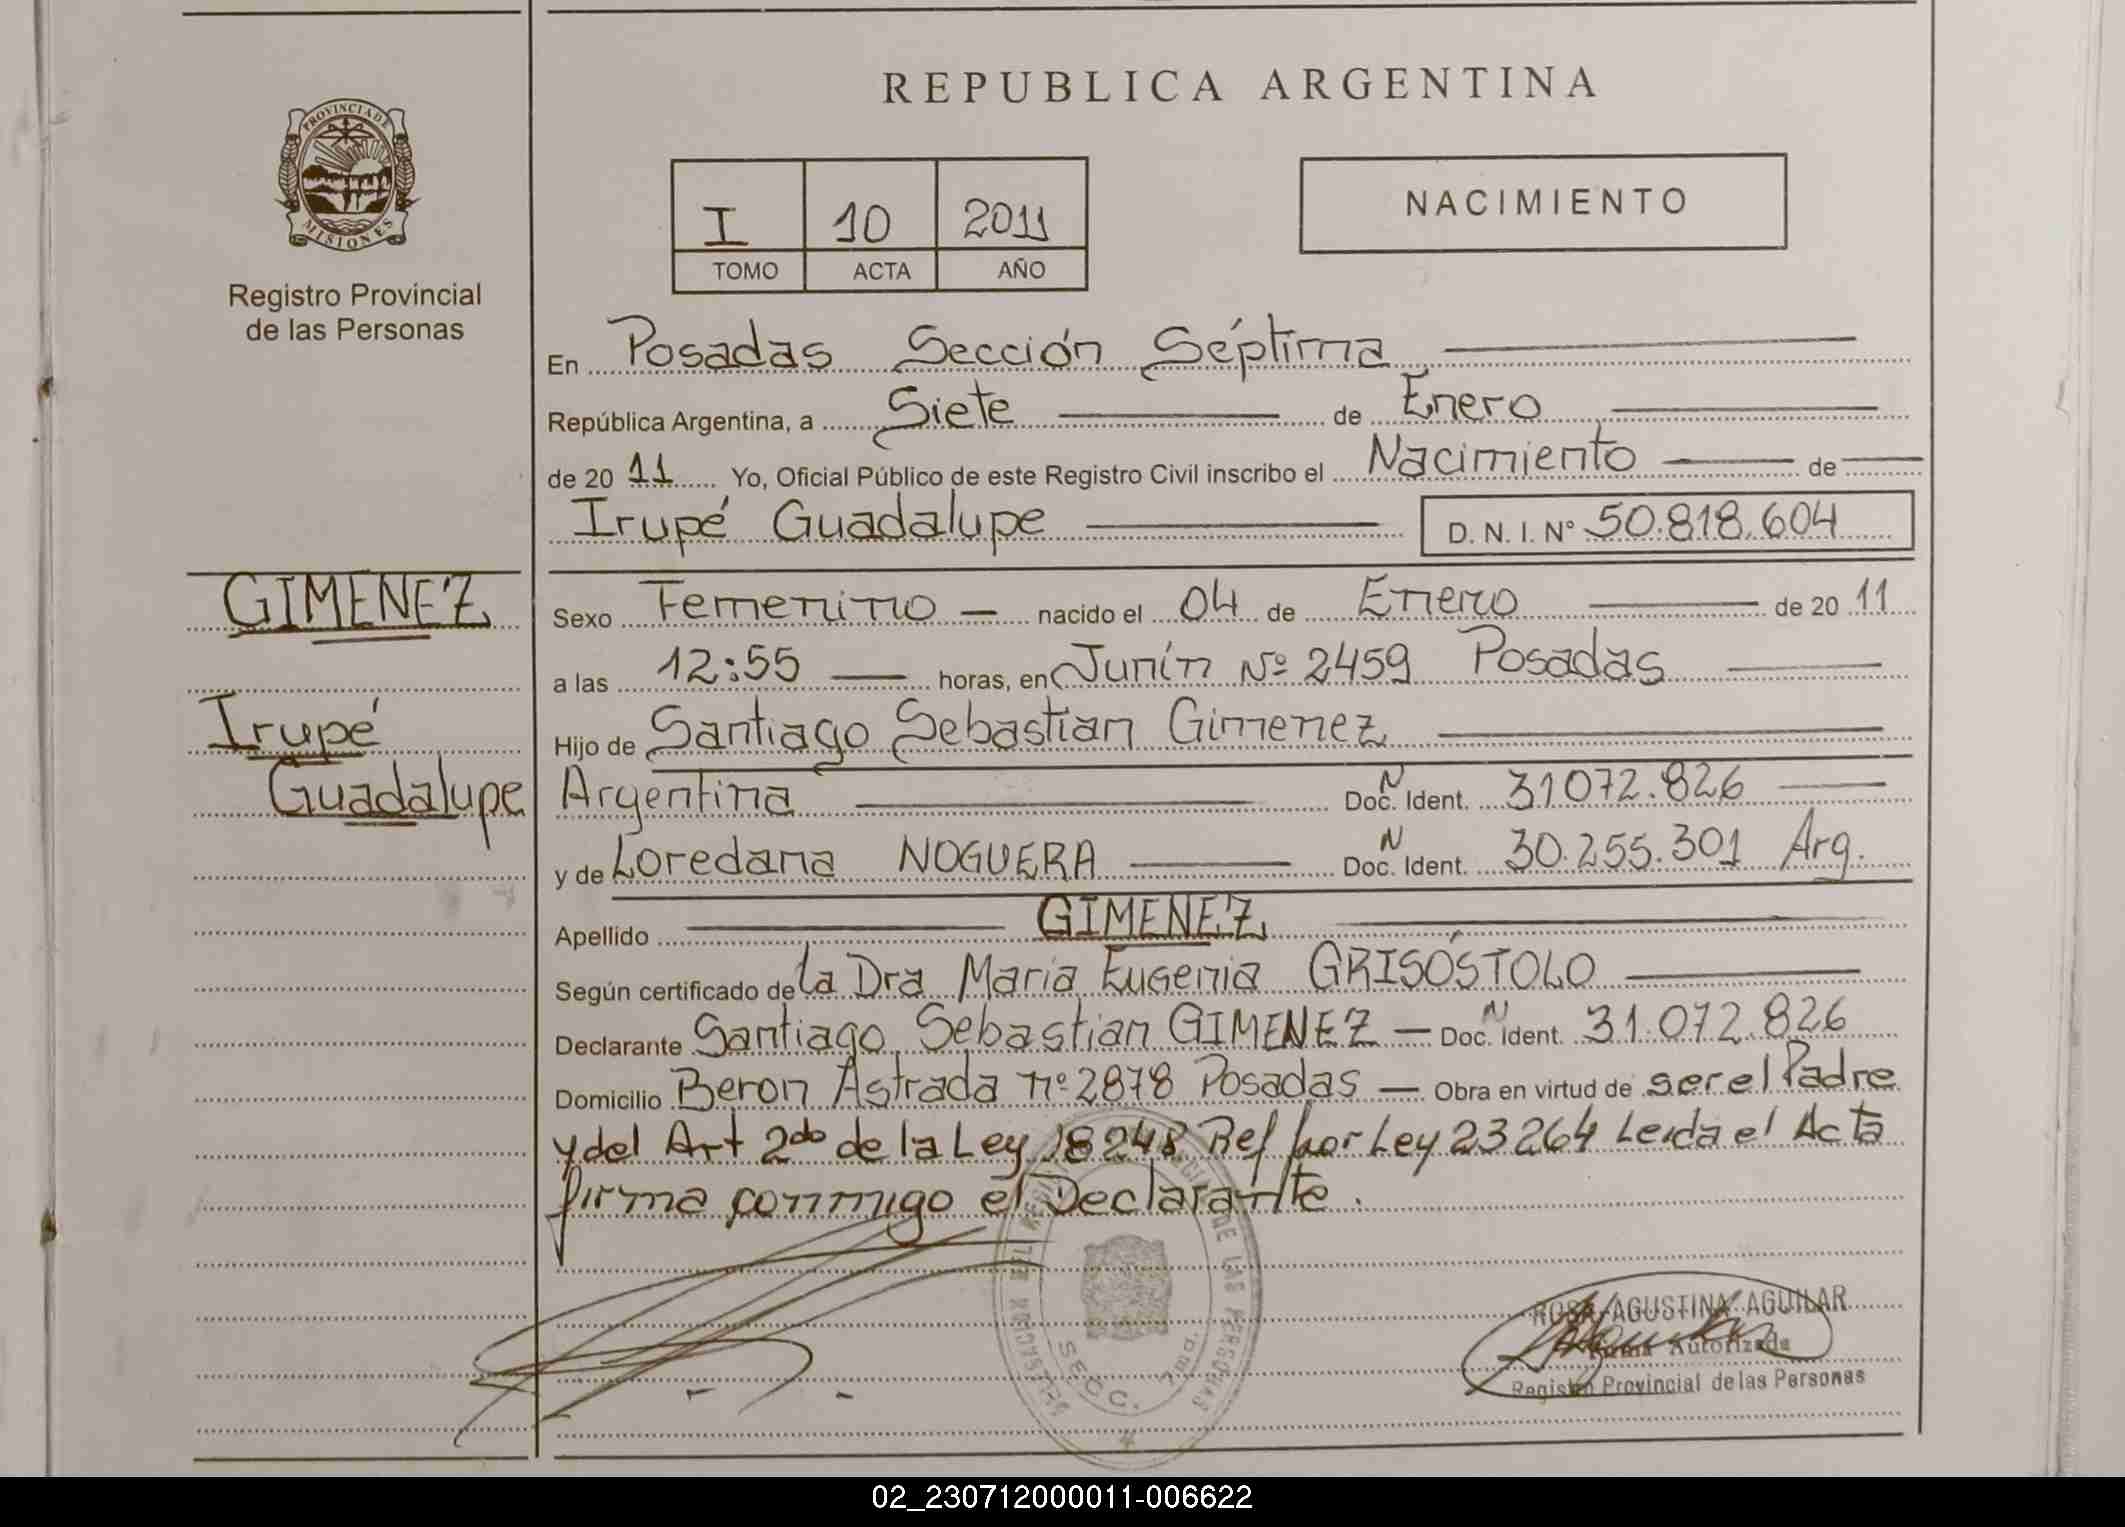 REPUBLICA ARGENTINA
PROVINCIA DE
MISIONES
Registro Provincial
de las Personas
I 10 2011
TOMO ACTA AÑO
NACIMIENTO
En Posadas Sección Séptima
República Argentina, a Siete de Enero
de 20 11 Yo, Oficial Público de este Registro Civil inscribo el Nacimiento de
Irupé Guadalupe D. N. I. Nº 50.818.604
GIMENEZ
Irupé
Guadalupe
Sexo Femenino nacido el 04 de Enero de 20 11
a las 12:55 horas, en Junín Nº 2459 Posadas
Hijo de Santiago Sebastian Gimenez
Argentina N Doc. Ident. 31072.826
y de Loredana NOGUERA N Doc. Ident. 30.255.301 Arg.
Apellido GIMENEZ
Según certificado de la Dra Maria Eugenia GRISÓSTOLO
Declarante Santiago Sebastian GIMENEZ N Doc. Ident. 31.072.826
Domicilio Beron Astrada nº 2878 Posadas Obra en virtud de ser el Padre
y del Art 2do de la Ley 18248 Ref por Ley 23264 Leida el Acta
firma conmigo el Declarante.
DE LAS PERSONAS
SECC. 7ma.
ROSA AGUSTINA AGUILAR
Firma Autorizada
Registro Provincial de las Personas
02_230712000011-006622